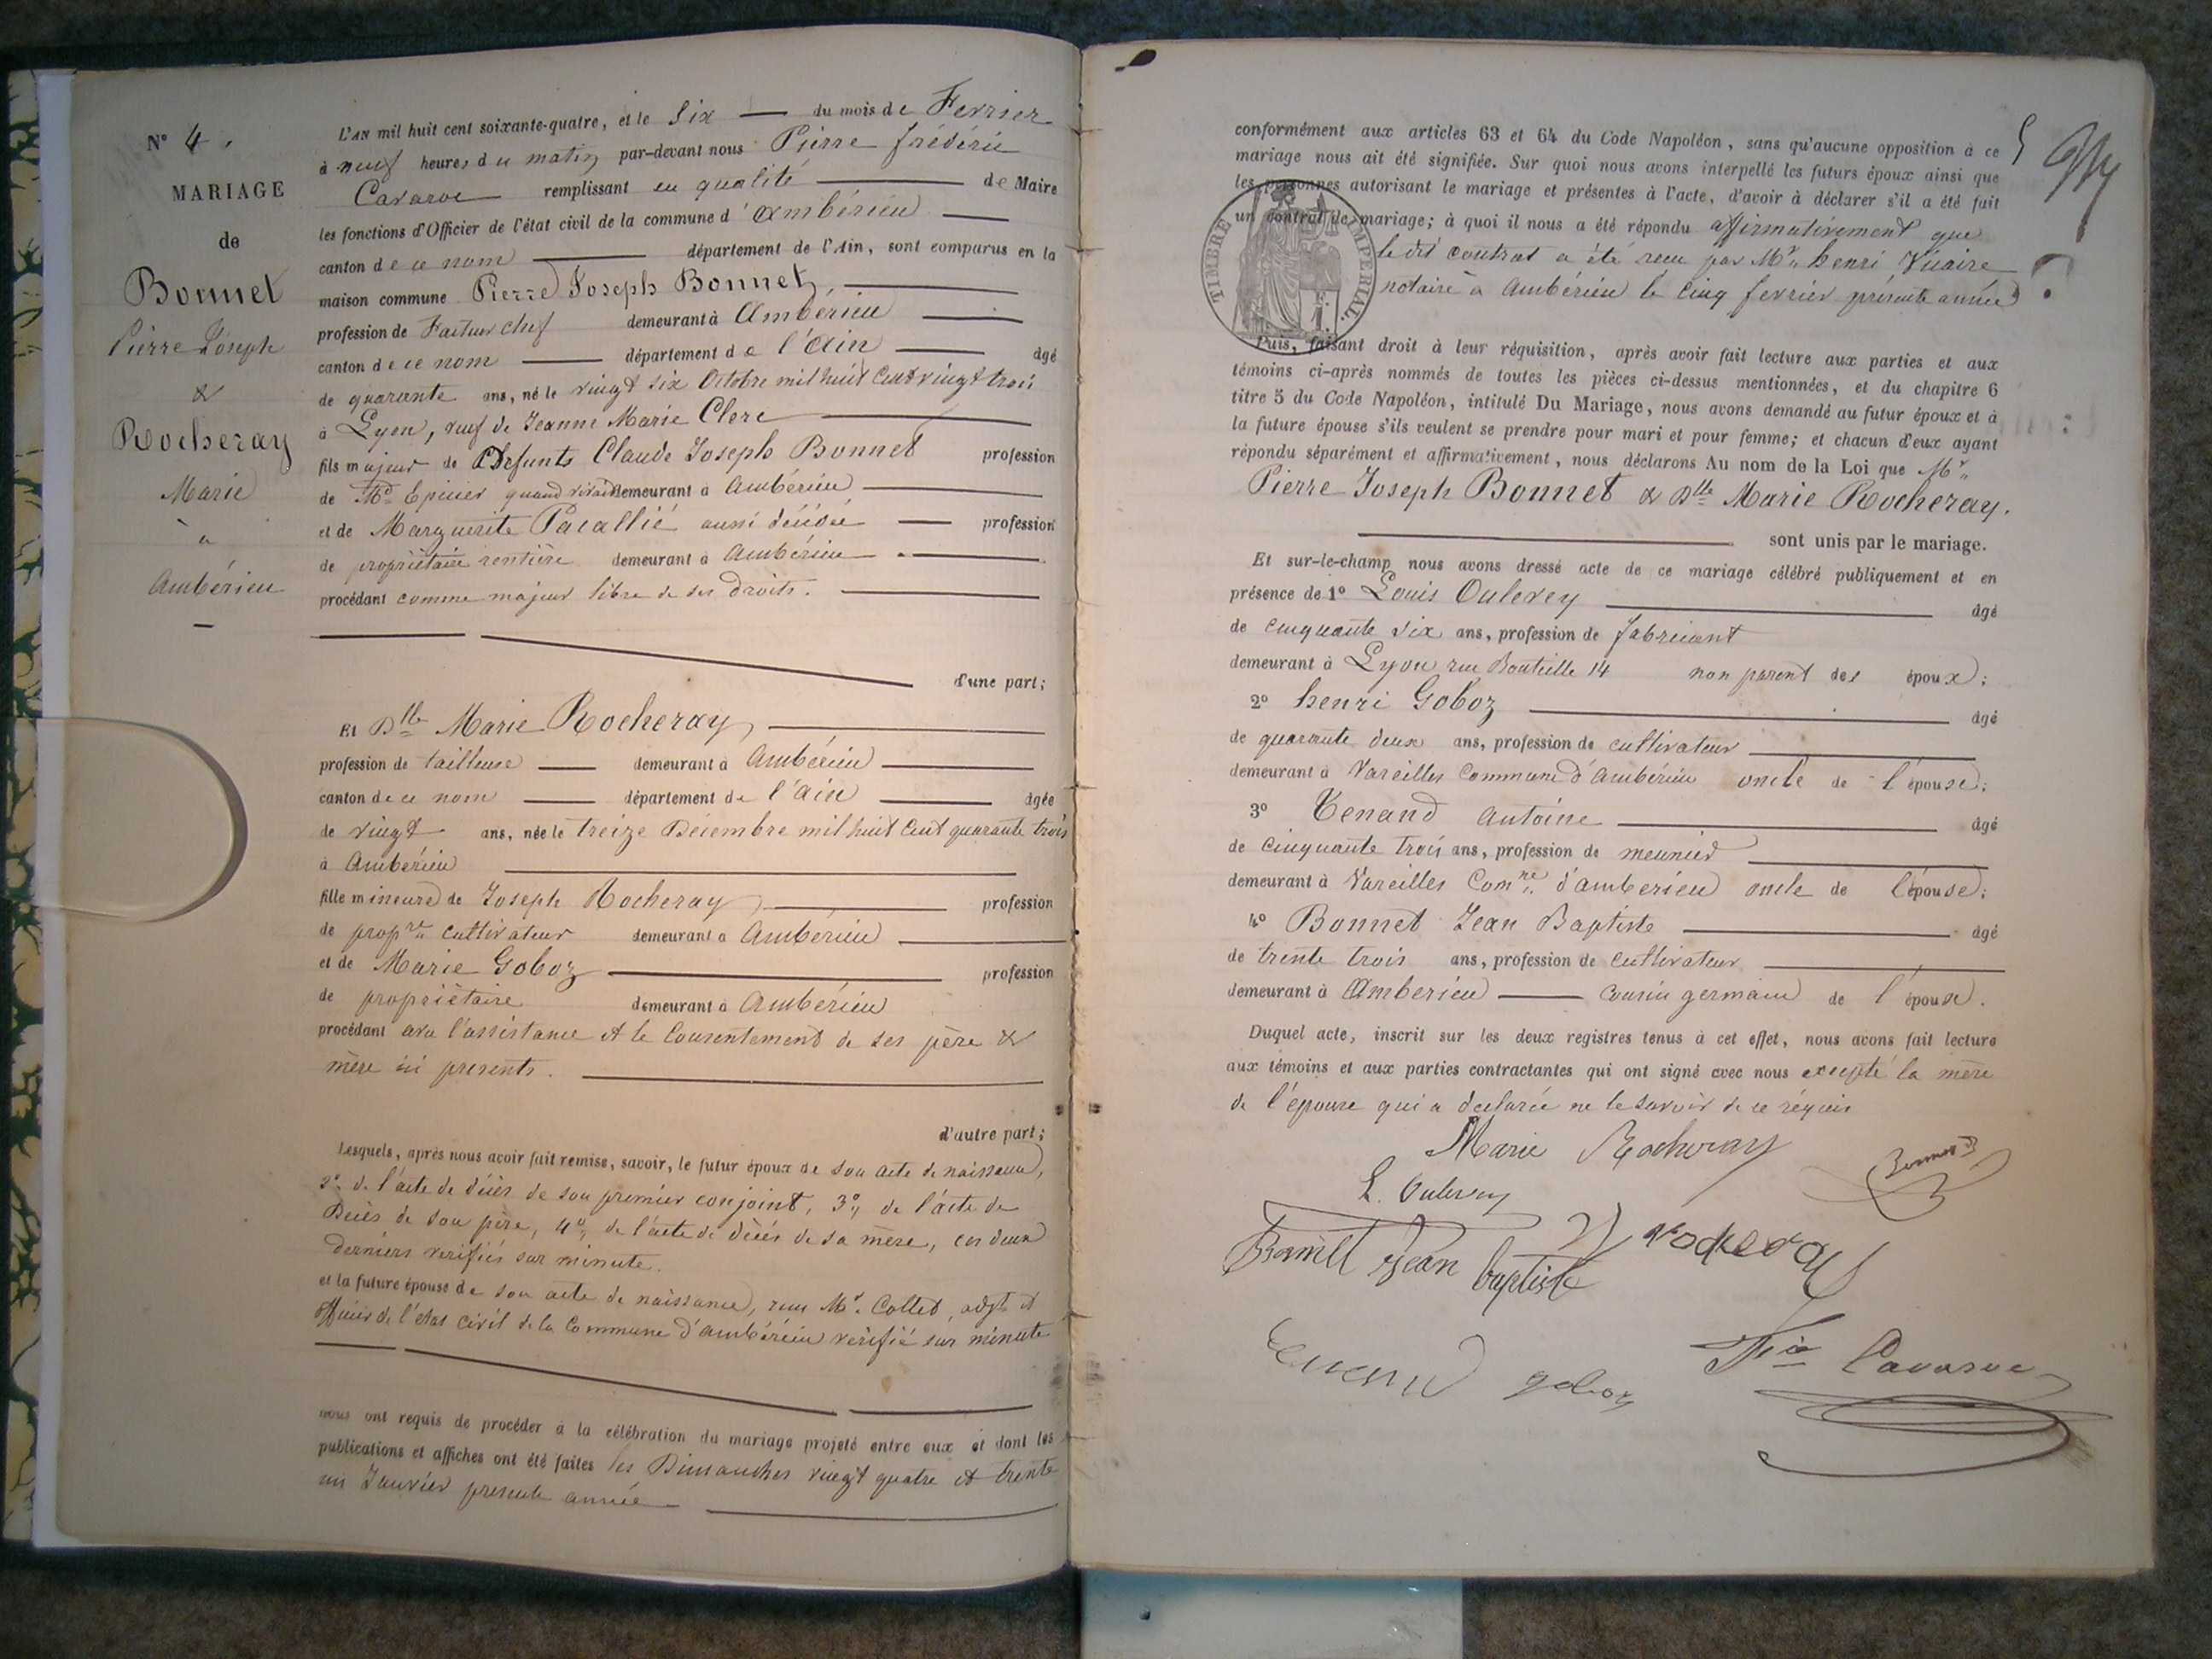 N° 4.
MARIAGE
de
Bonnet
Pierre Joseph
&
Rocheray
Marie
à
Ambérieu
L'AN mil huit cent soixante-quatre, et le Six du mois de Fevrier
à neuf heures du matin par-devant nous Pierre frédéric
Cavarve remplissant en qualité de Maire
les fonctions d'Officier de l'état civil de la commune d'Ambérieu
canton de ce nom département de l'Ain, sont comparus en la
maison commune Pierre Joseph Bonnet,
profession de Facteur chef demeurant à Ambérieu
canton de ce nom département de l'Ain âgé
de quarante ans, né le vingt six Octobre mil huit cent vingt trois
à Lyon, veuf de Jeanne Marie Clerc
fils majeur de Defunts Claude Joseph Bonnet profession
de Md Epicier quand vivait demeurant à Ambérieu
et de Marguerite Pacallié aussi décédée profession
de propriétaire rentière demeurant à Ambérieu
procédant comme majeur libre de ses droits.
d'une part;
Et Dlle Marie Rocheray,
profession de tailleuse demeurant à Ambérieu
canton de ce nom département de l'ain âgée
de vingt ans, née le treize Décembre mil huit cent quarante trois
à Ambérieu
fille mineure de Joseph Rocheray, profession
de propre cultivateur demeurant à Ambérieu
et de Marie Goboz profession
de propriétaire demeurant à Ambérieu
procédant avec l'assistance et le Consentement de ses père &
mère ici presents.
d'autre part;
Lesquels, après nous avoir fait remise, savoir, le futur époux de son acte de naissance,
2° de l'acte de décès de son premier conjoint, 3° de l'acte de
Décès de son père, 4° de l'acte de décès de sa mère, ces deux
derniers verifiés sur minute.
et la future épouse de son acte de naissance, reçu Mr. Collet, adjt et
officier de l'état civil de la Commune d'ambérieu vérifié sur minute
nous ont requis de procéder à la célébration du mariage projeté entre eux et dont les
publications et affiches ont été faites les Dimanches vingt quatre et trente
un Janvier presente année
conformément aux articles 63 et 64 du Code Napoléon, sans qu'aucune opposition à ce
mariage nous ait été signifiée. Sur quoi nous avons interpellé les futurs époux ainsi que
les personnes autorisant le mariage et présentes à l'acte, d'avoir à déclarer s'il a été fait
un contrat de mariage; à quoi il nous a été répondu affirmativement que
le dit contrat a été recu par Mr. henri Vuaire
notaire à Ambérieu le Cinq fevrier présente année
TIMBRE IMPERIAL
Puis, faisant droit à leur réquisition, après avoir fait lecture aux parties et aux
témoins ci-après nommés de toutes les pièces ci-dessus mentionnées, et du chapitre 6
titre 5 du Code Napoléon, intitulé Du Mariage, nous avons demandé au futur époux et à
la future épouse s'ils veulent se prendre pour mari et pour femme; et chacun d'eux ayant
répondu séparément et affirmativement, nous déclarons Au nom de la Loi que Mr.
Pierre Joseph Bonnet & Dlle Marie Rocheray.
sont unis par le mariage.
Et sur-le-champ nous avons dressé acte de ce mariage célébré publiquement et en
présence de 1° Louis Oulevey âgé
de cinquante six ans, profession de fabricant
demeurant à Lyon rue Bouteille 14 non parent des époux;
2° henri Goboz âgé
de quarante deux ans, profession de cultivateur
demeurant à Vareilles Commune d'ambérieu oncle de l'épouse;
3° Tenand Antoine âgé
de cinquante trois ans, profession de meunier
demeurant à Vareilles Comne d'amberieu oncle de l'épouse;
4° Bonnet Jean Baptiste âgé
de trente trois ans, profession de cultivateur
demeurant à Amberieu cousin germain de l'époux.
Duquel acte, inscrit sur les deux registres tenus à cet effet, nous avons fait lecture
aux témoins et aux parties contractantes qui ont signé avec nous excepté la mère
de l'épouse qui a declarée ne le savoir de ce réquis
Marie Rocheray
Bonnet
L. Oulevey
Rocheray
Bonnet jean baptiste
Tenand goboz
Fic Cavarve